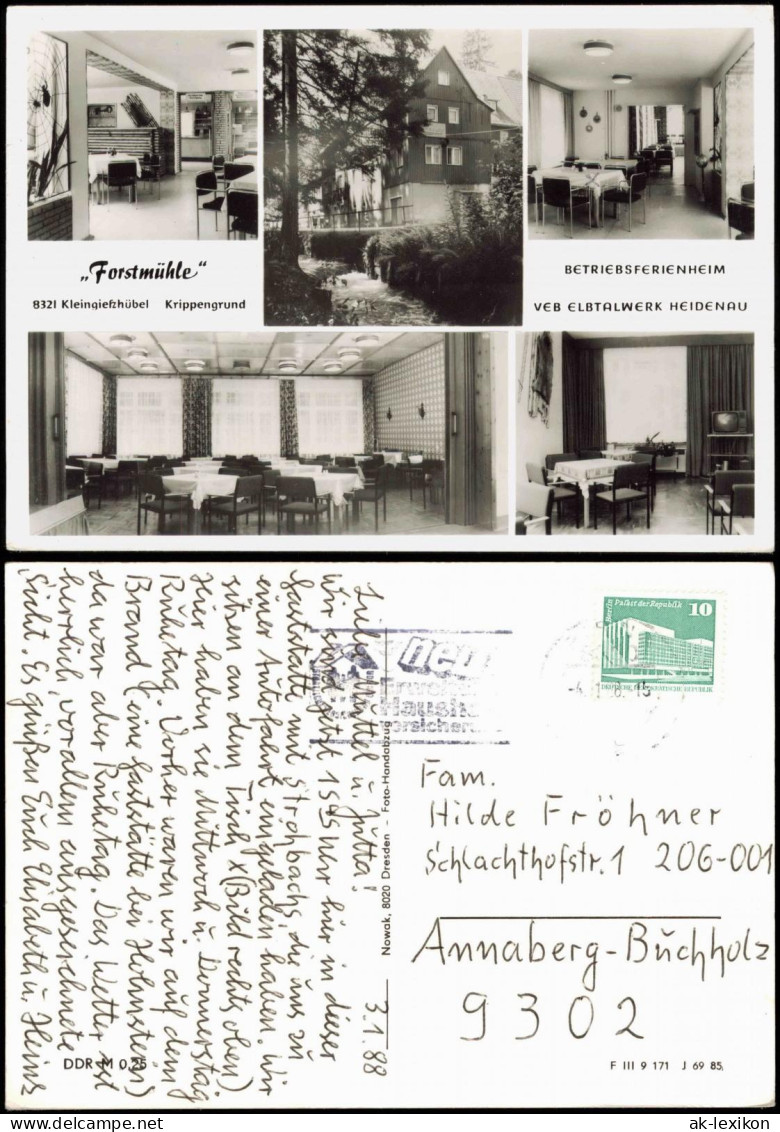 „Forstmühle“
8321 Kleingießhübel Krippengrund
BETRIEBSFERIENHEIM
VEB ELBTALWERK HEIDENAU
Berlin Palast der Republik 10
DEUTSCHE DEMOKRATISCHE REPUBLIK
neu
Erweiterte
Haush
versicher
u. Jutta!
3.1.88
Wir sind jetzt 15⁴⁵ Uhr hier in dieser
Gaststätte mit Strohbachs, die uns zu
einer Autofahrt eingeladen haben. Wir
sitzen an dem Tisch x (Bild rechts oben)
Hier haben sie Mittwoch u. Donnerstag
Ruhetag. Vorher waren wir auf dem
Brand (eine Gaststätte bei Hohnstein)
da war aber Ruhetag. Das Wetter ist
herrlich, vor allem ausgezeichnete
Sicht. Es grüßen Euch Elisabeth u. Heinz
Nowak, 8020 Dresden - Foto-Handabzug
Fam.
Hilde Fröhner
Schlachthofstr. 1 206-001
Annaberg-Buchholz
9302
DDR M 0,25
F III 9 171 J 69 85
ak-lexikon